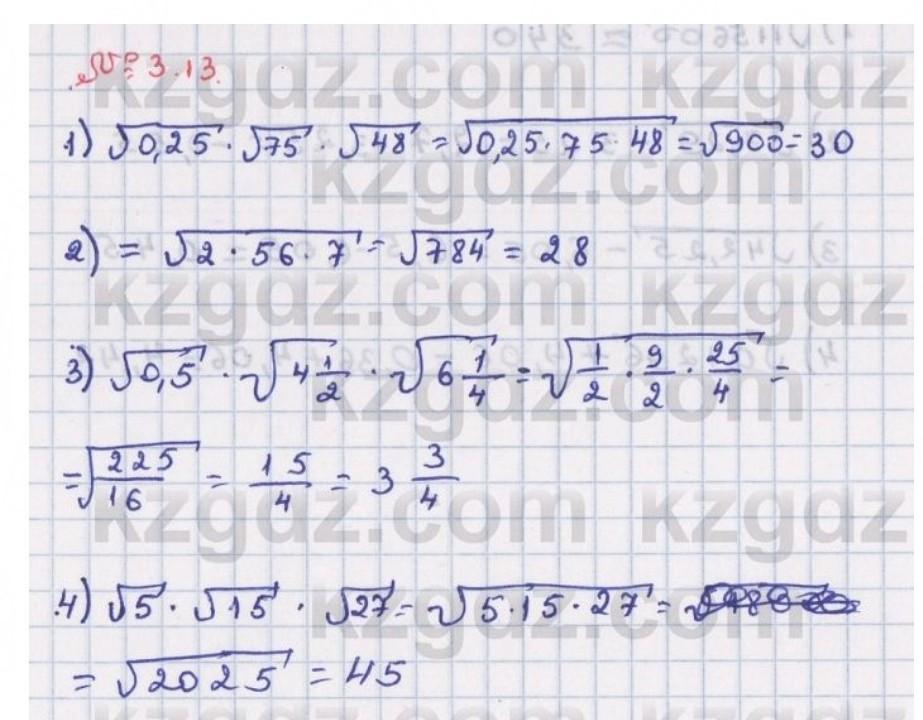 № 3.13.
1) √0,25 · √75 · √48 = √0,25 · 75 · 48 = √900 = 30
2) = √2 · 56 · 7 = √784 = 28
3) √0,5 · √4 1/2 · √6 1/4 = √1/2 · 9/2 · 25/4 =
= √225/16 = 15/4 = 3 3/4
4) √5 · √15 · √27 = √5 · 15 · 27 =
= √2025 = 45
kzgdz.com kzgdz
kzgdz.com
kzgdz.com kzgdz
kzgdz.com
kzgdz.com kzgdz
kzgdz.com